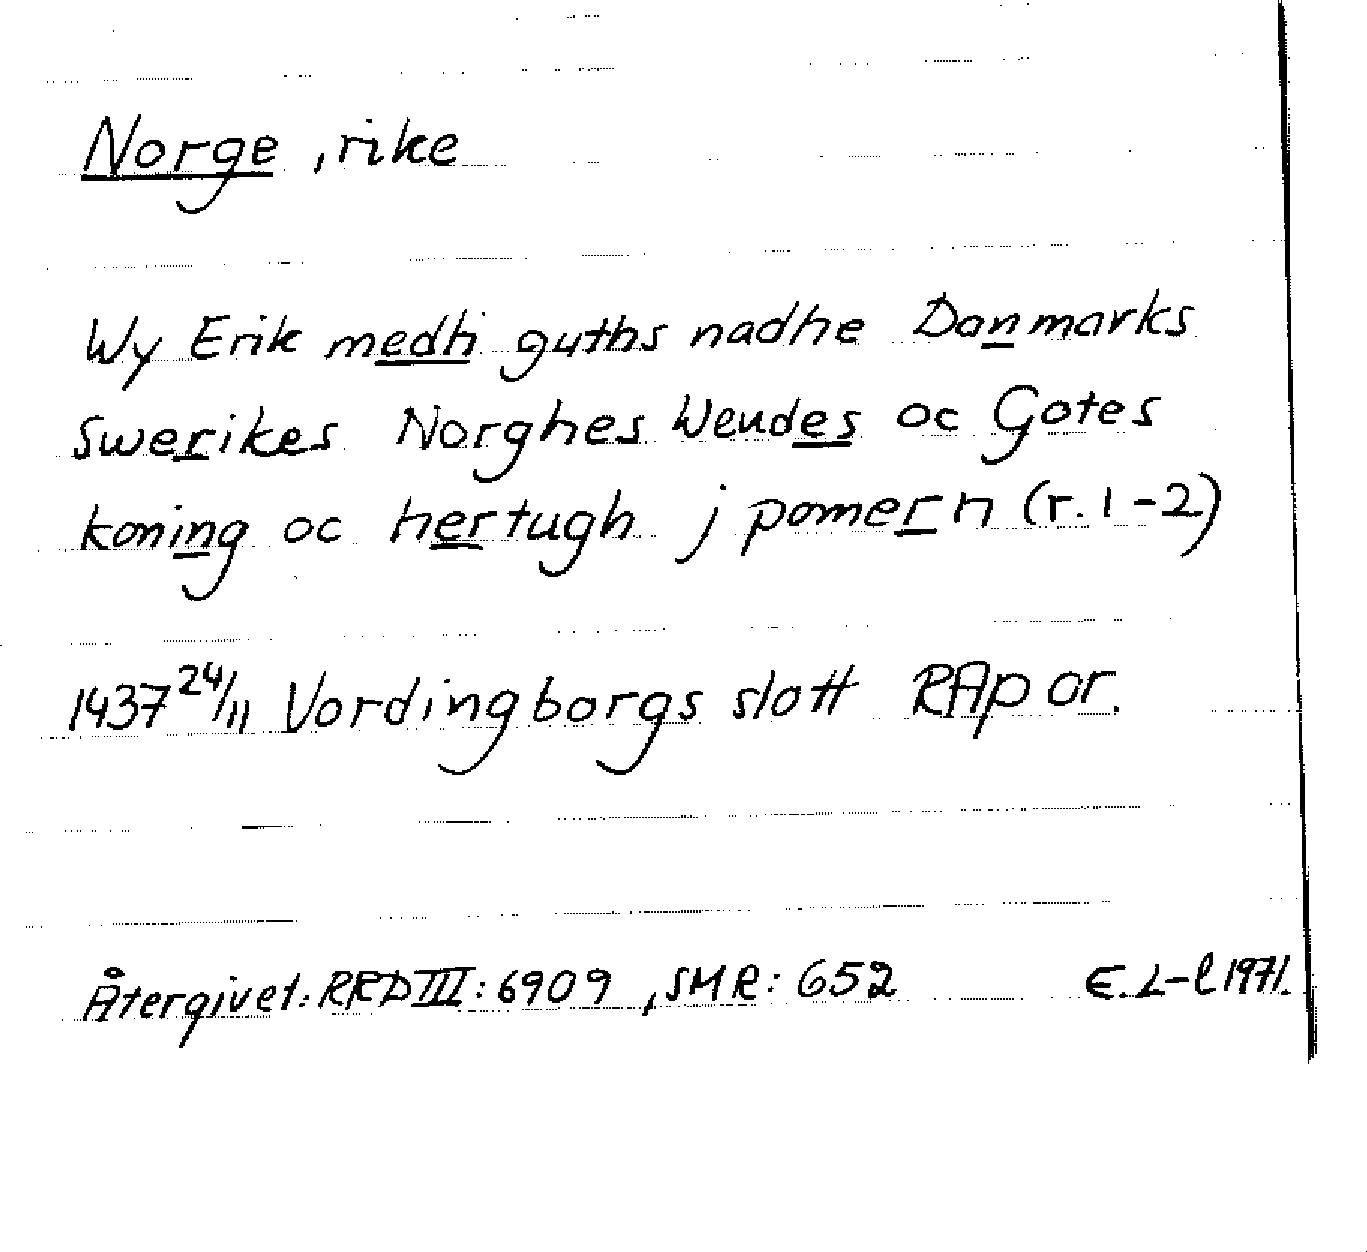 Norge, rike
Wy Erik medh guths nadhe Danmarks
Swerikes Norghes Wendes oc Gotes
koning oc hertugh j pomern (r. 1-2)
1437 24/11 Vordingborgs slott RAp or.
Återgivet: RRD III: 6909, SMR: 652 E. L-l 1971.